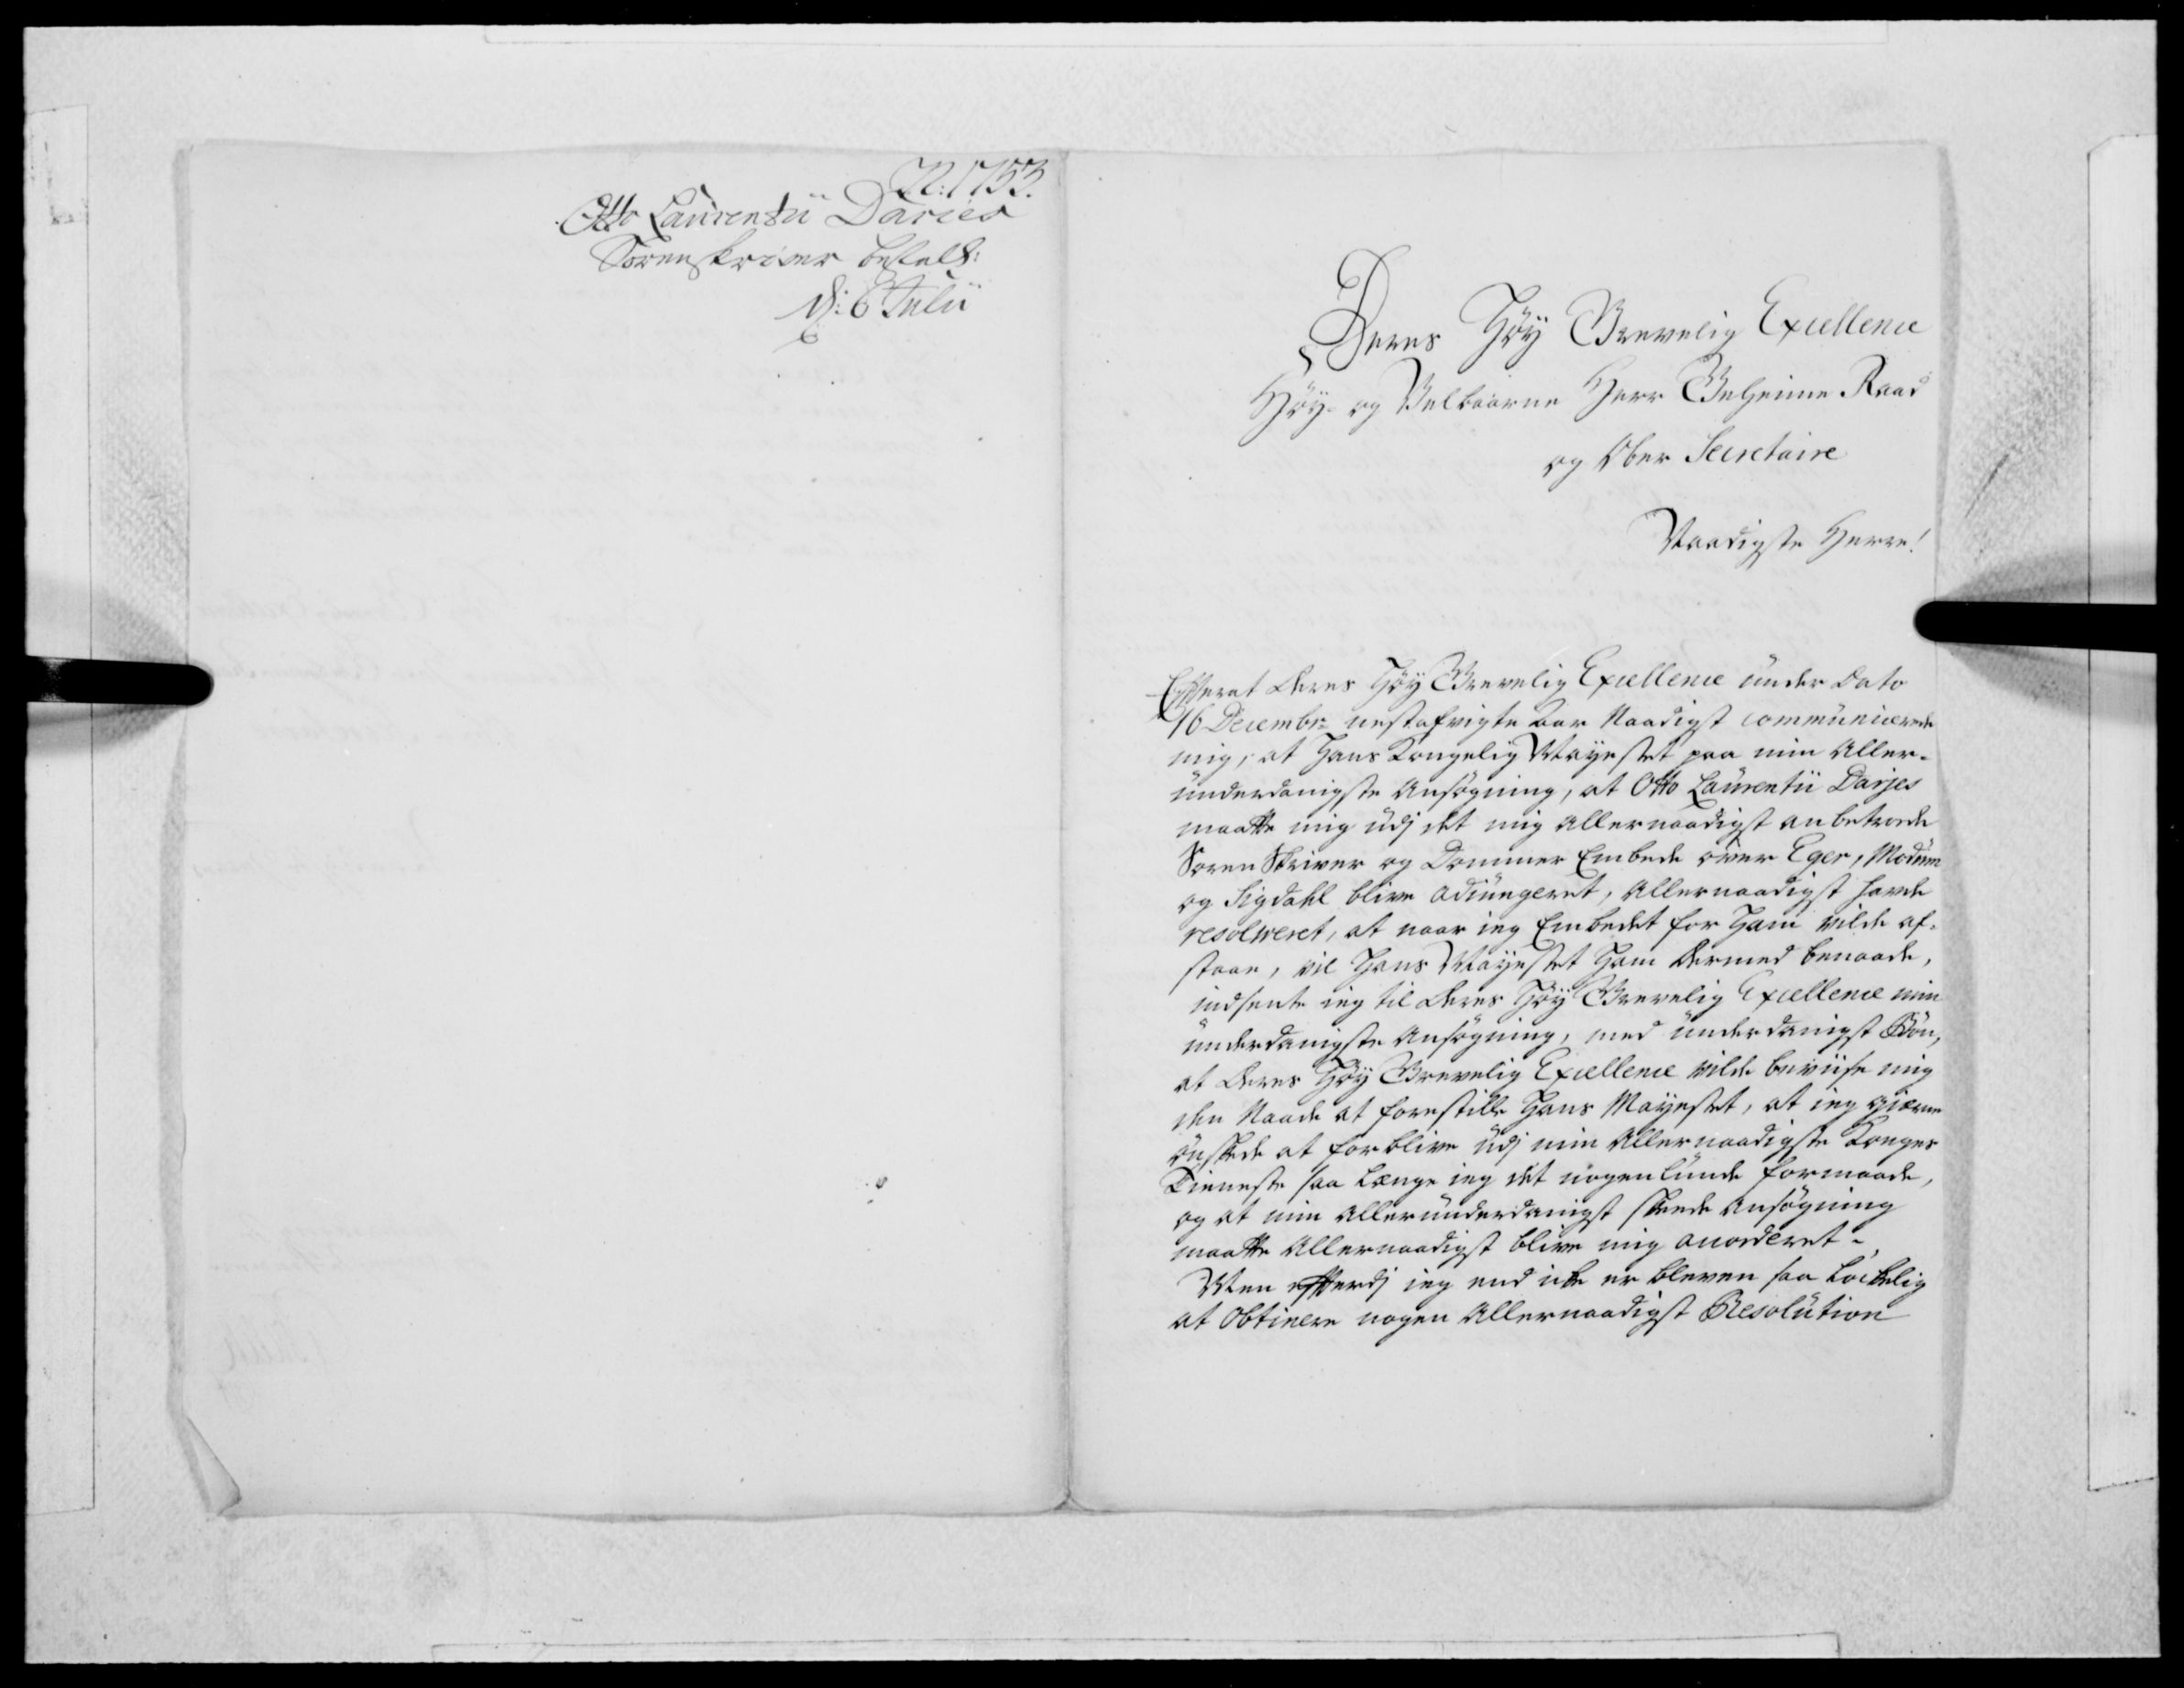 N: 1753.
Otto Laurentii Daries
Sorenskriver bestall:
d: 6 Julii
Deres Høy Grevelig Excellence
Høy- og Velbaarne Herr Geheime Raad
og Ober Secretaire
Naadigste Herre!
Efterat Deres Høy Grevelig Excellence under Dato
16 Decembr: nestafvigte Aar Naadigst communicerede
mig, at Hans Kongelig Mayestet paa min Aller-
underdanigste Ansøgning, at Otto Laurentii Darjes
maatte mig udj det mig allernaadigst anbetroede
Soren Skriver og Dommer Embede over Eger, Modum
og Sigdahl blive adiungeret, Allernaadigst havde
resolveret, at naar ieg Embedet for Ham vilde af-
staae, vil Hans Mayestet Ham dermed benaade,
indsente ieg til Deres Høy Grevelig Excellence min
underdanigste Ansøgning, med underdanigst Bøn,
at Deres Høy Grevelig Excellence vilde beviise mig
den Naade at forestille Hans Mayestet, at ieg gierne
ønskede at forblive udj min Allernaadigste Konges
Tieneste saa længe ieg det nogenlunde formaade,
og at min allerunderdanigst skeede Ansøgning
maatte Allernaadigst blive mig accorderet -
Men efterdj ieg end icke er bleven saa lockelig
at obtinere nogen Allernaadigst Resolution